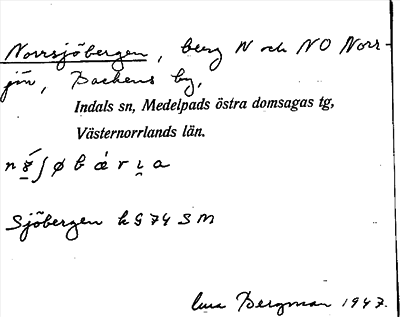 Norrsjöbergen, berg N och NO Norr-
sjön, Backens by,
Indals sn, Medelpads östra domsagas tg,
Västernorrlands län.
Sjöbergen k G 74 S M
Bergman 1947.